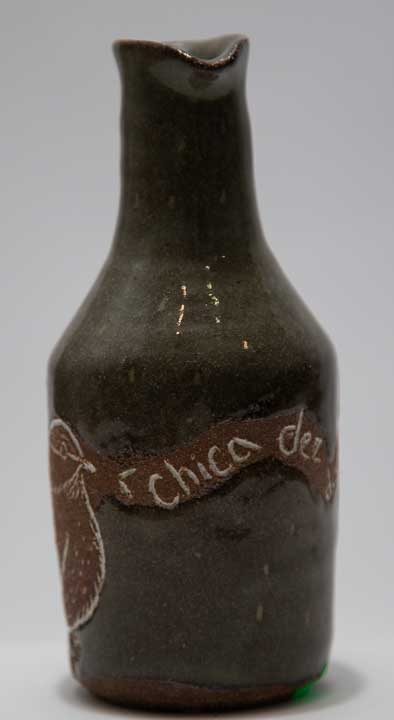 chica dee